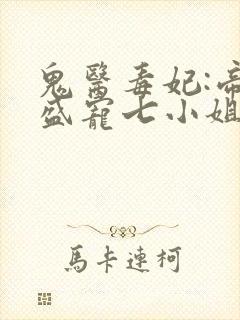 鬼醫毒妃:帝
盛寵七小姐
馬卡連柯